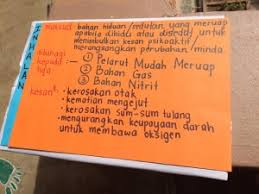 INHALAN
maksud: bahan hiduan / sedutan yang meruap
apabila dihidu atau disedut untuk
menimbulkan kesan psikoaktif
merangsangkan perubahan minda
dibahagi
kepada → ① Pelarut Mudah Meruap
tiga
② Bahan Gas
③ Bahan Nitrit
kesan : • kerosakan otak
• kematian mengejut
• kerosakan sum-sum tulang
• mengurangkan keupayaan darah
untuk membawa oksigen